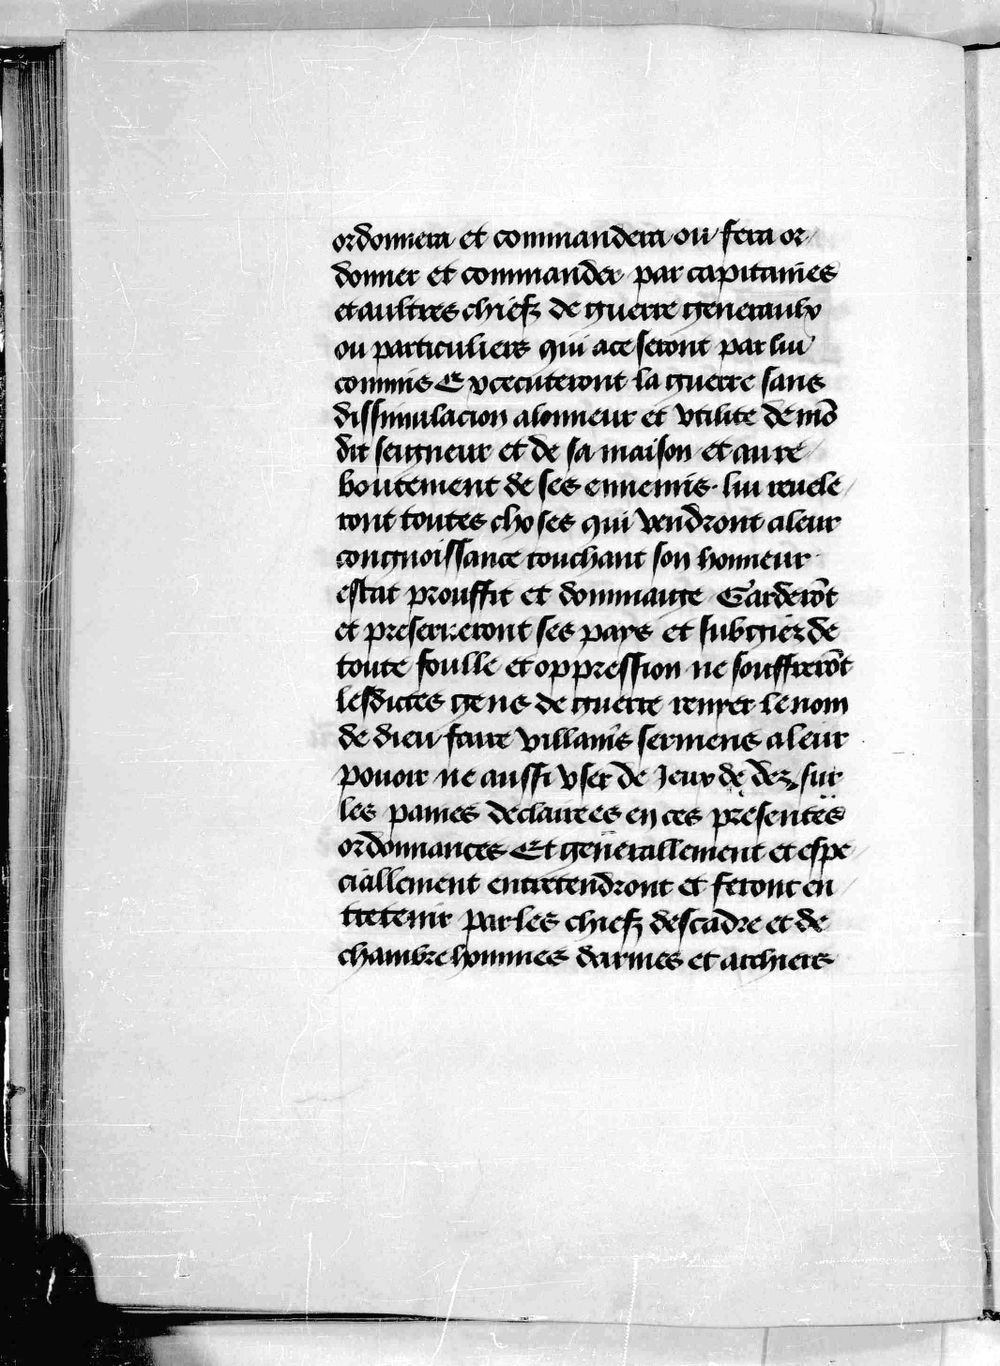 ordonnera et commandera ou fera or
donner et commander par capitaines
et aultres chiefz de guerre generaulx
ou particuliers qui a ce seront par lui
commis Executeront la guerre sans
dissimulacion alonneur et vtilite de mō
dit seigneur et de sa maison et au re
boutement de ses ennemis. lui reuele
ront toutes choses qui vendront a leur
congnoissance touchant son honneur
estat prouffit et dommaige Garderōt
et preserueront ses pays et subgiez de
toute foulle et oppression ne souffrerōt
lesdictes gens de guerre renyer le nom
de dieu faire villains sermens a leur
pouoir ne aussi vser de Jeux de dez sur
les paines declairees en ces presentes
ordonnances Et generallement et espe
ciallement entretendront et feront en
tretenir par les chiefz descadre et de
chambre hommes darmes et archiers